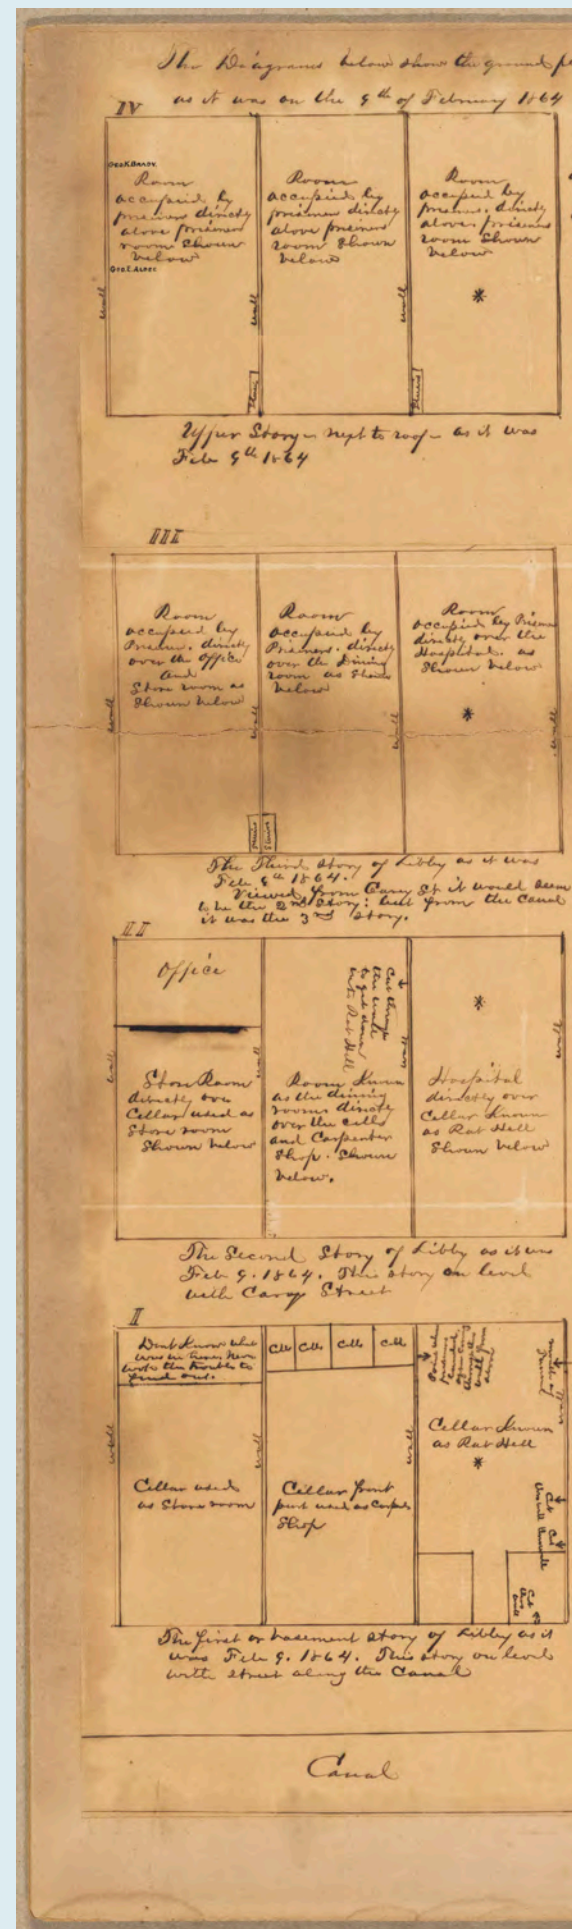 The Diagrams below show the ground
as it was on the 9th of February 1864
IV
GEO.K.BRADY.
Room
occupied by
prisoners directly
above prisoners
room shown
below
wall
Room
occupied by
prisoners directly
above prisoners
room shown
below
wall
Room
occupied by
prisoners. directly
above prisoners
room shown
below
wall
Stairs
Stairs
Upper Story - next to roof - as it was
Feb 9th 1864
III
Room
occupied by
Prisoners. directly
over the office
and
Store room as
shown below
Room
occupied by
Prisoners. directly
over the Dining
room as shown
below
Room
occupied by
directly over the
Hospital. as
shown below
wall
wall
wall
wall
Stairs
Stairs
The Third story of Libby as it was
Feb 9th 1864.
Viewed from Carey St it would seem
to be the 2nd story: but from the Canal
it was the 3rd story.
II
Office
Cut through
the wall
to get down
into Rat Hell
wall
wall
Store Room
directly over
Cellar used as
Store room
shown below
Room Known
as the dining
room directly
over the cells
and Carpenter
Shop. Shown
below.
Hospital
directly over
Cellar Known
as Rat Hell
shown below
The Second Story of Libby as it was
Feb 9. 1864. This story on level
with Carey Street
I
Dont Know what
was in here. Never
took the trouble to
find out.
Cell
Cell
Cell
Cell
wall
wall
wall
Cellar Known
as Rat Hell
Cellar used
as Store room
Cellar front
part used as Carpenter
Shop
The first or basement story of Libby as it
was Feb 9. 1864. This story on level
with street along the Canal
Canal